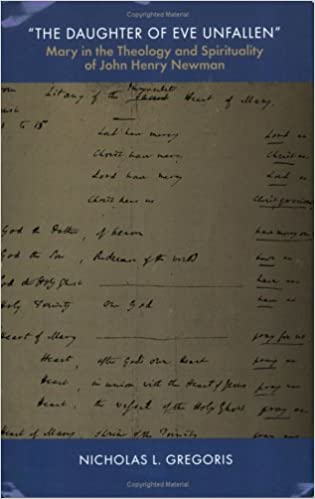 "THE DAUGHTER OF EVE UNFALLEN"
Mary in the Theology and Spirituality
of John Henry Newman
Litany of the Immaculate Heart of Mary.
1 to 18
Lord have mercy Lord
Christ have mercy Christ
Lord have mercy Lord
Christ hear us Christ graciously
God the Father, of heaven have mercy on
God the Son, Redeemer of the world have
God the Holy Ghost have
Holy Trinity One God have
Heart of Mary pray for us
Heart, after God's own heart pray
Heart, in union with the Heart of Jesus pray
Heart, the vessel of the Holy Ghost, pray
Heart of Mary, shrine of the Trinity pray
NICHOLAS L. GREGORIS